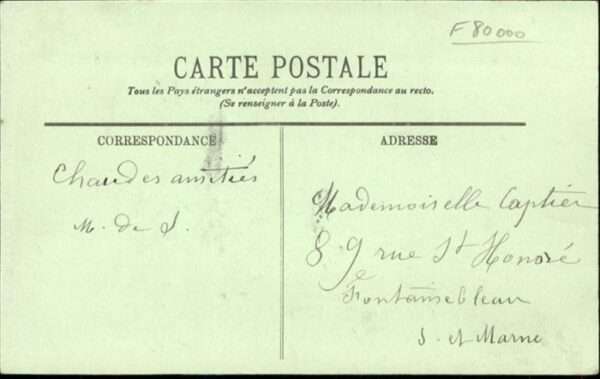 F 80000
CARTE POSTALE
Tous les Pays étrangers n'acceptent pas la Correspondance au recto.
(Se renseigner à la Poste).
CORRESPONDANCE
ADRESSE
Chaudes amitiés
M. de S.
Mademoiselle Captier
89 rue St Honoré
Fontainebleau
S. et Marne